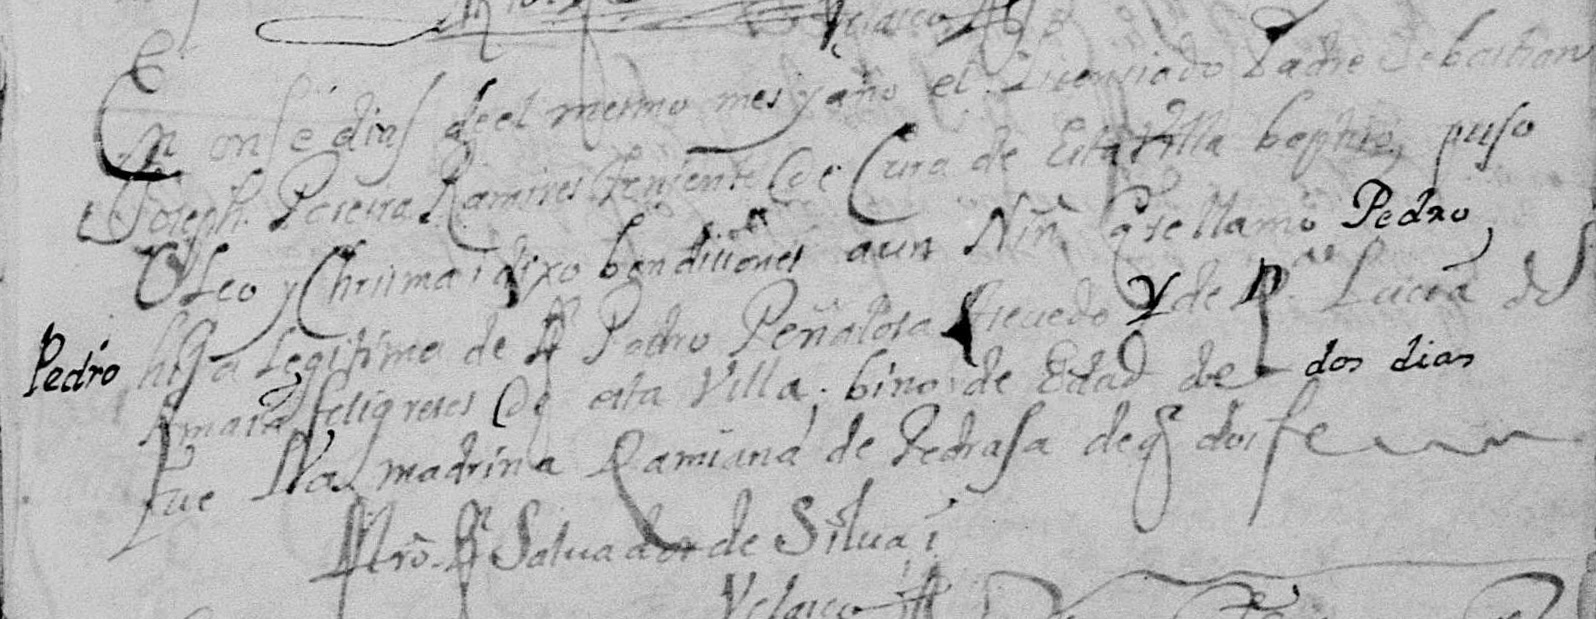 Velasco
En onse dias de el mesmo mes y año el Licenciado Padre Sebastian
Joseph Pereira Ramires teniente de Cura de Esta Villa baptiso, puso
Oleo y Chrisma i dixo bendiciones a un Niñ q se llamo Pedro
Pedro
hijo Legitimo de Dn Pedro Peñalosa Asevedo Y de Da. Lucia de
Amaia feligreses de esta Villa. bino de Edad de dos dias
fue Na madrina Damiana de Pedrasa de q doi fe
Mro. Dn Salvador de Silva i
Velasco